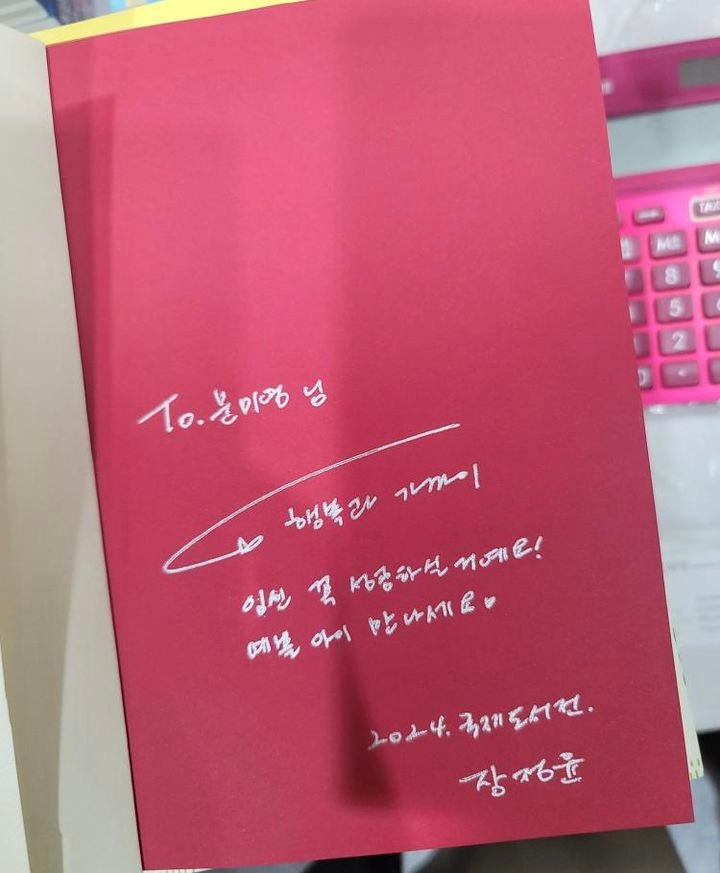 To. 문미영 님
행복과 가까이
임신 꼭 성공하실 거예요!
예쁜 아이 만나세요
2024. 국제도서전.
장정윤
TAX
MR
M
8
9
5
2
0